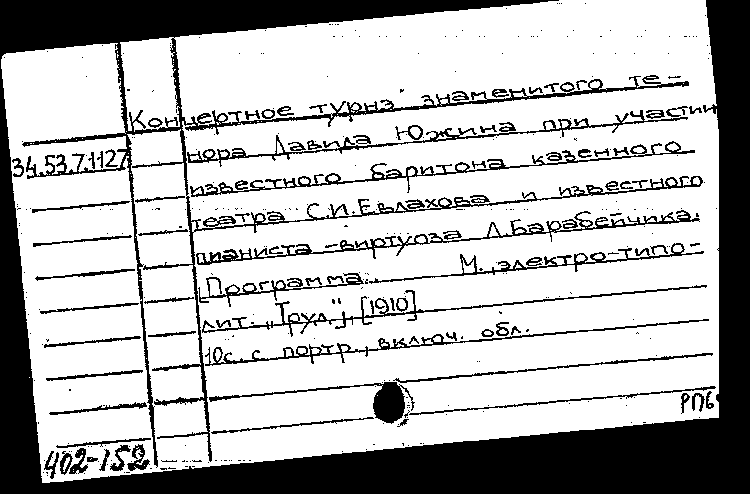 Концертное турнэ знаменитого те-
34.53.7.1127
нора Давида Южина при участии
известного баритона казенного
театра С.И.Евлахова и известного
пианиста-виртуоза Л.Барабейчика.
Программа. М., электро-типо-
лит. „Труд", [1910].
10с. с портр., включ. обл.
РПб
402-152